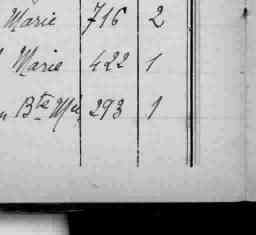 Marie 716 2
Marie 422 1
Bte Mie 293 1